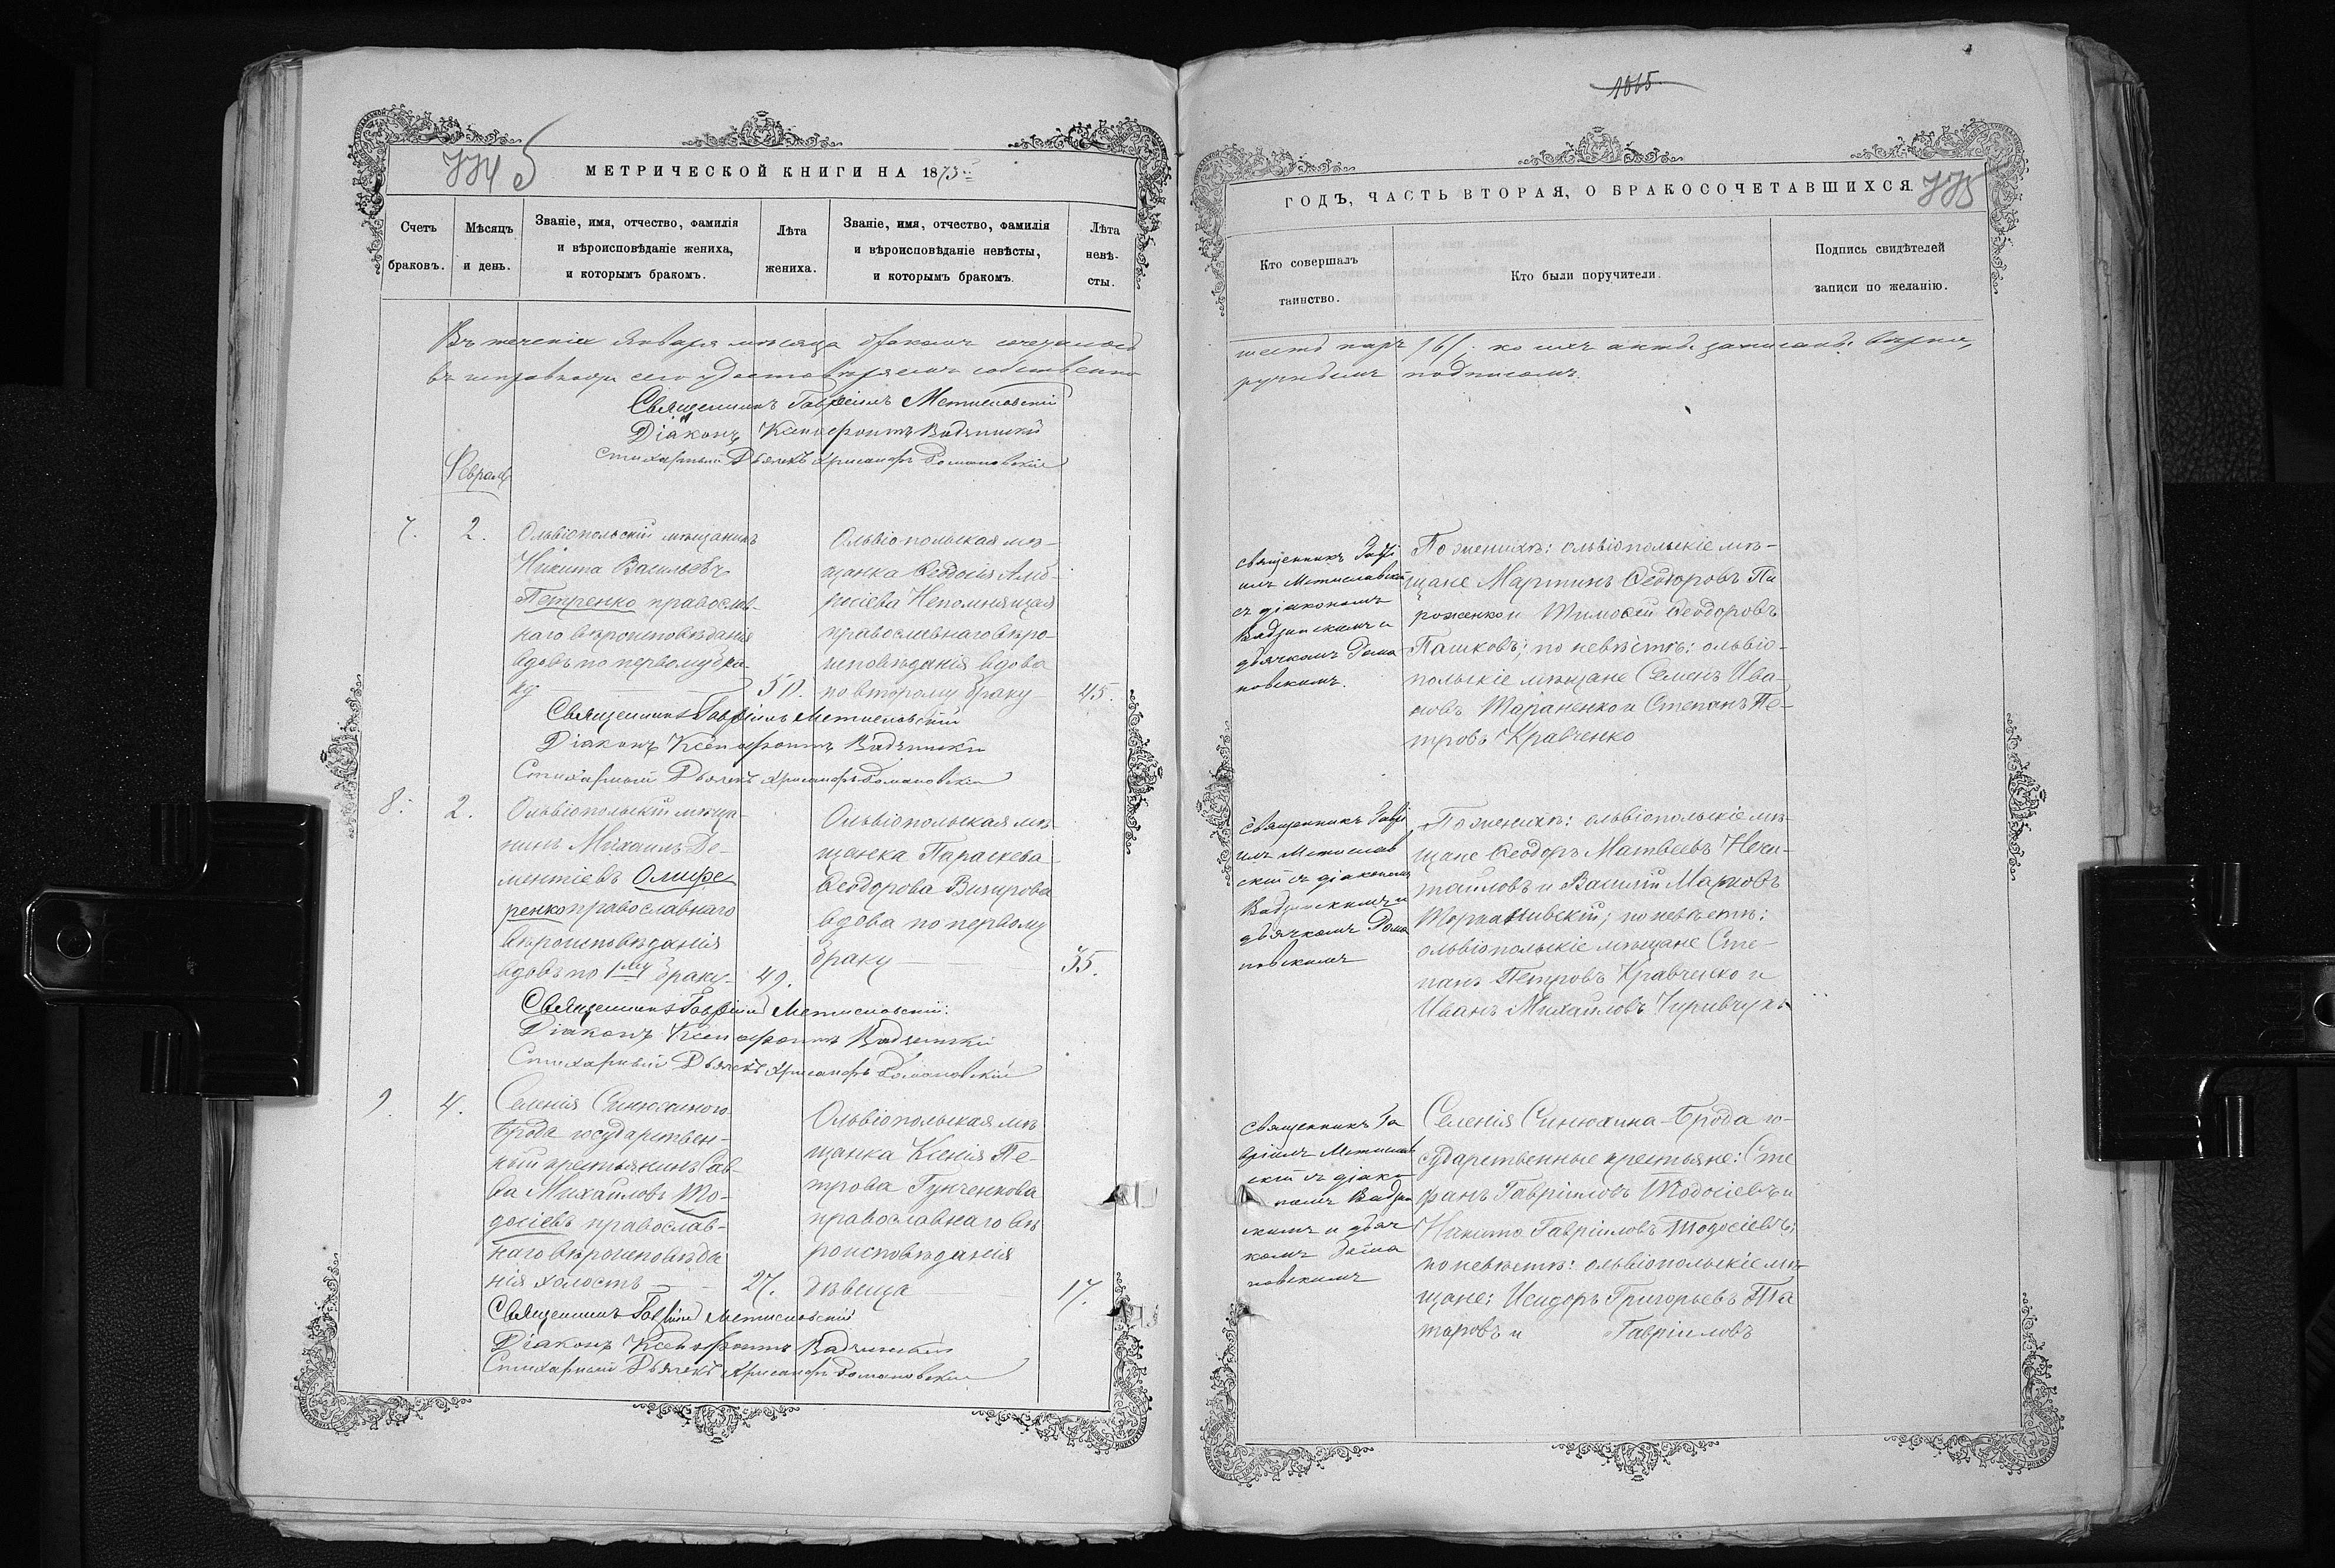 774 5
МЕТРИЧЕСКОЙ КНИГИ НА 1875
Счетъ браковъ.
Мѣсяцъ и день.
Званіе, имя, отчество, фамилія
и вѣроисповѣданіе жениха,
и которымъ бракомъ.
Лѣта жениха.
Званіе, имя, отчество, фамилія
и вѣроисповѣданіе невѣсты,
и которымъ бракомъ.
Лѣта невѣ-
сты.
Въ теченіи Января мѣсяца бракомъ сочеталось
въ исправности сего удостовѣряемъ собственно
Священникъ Гавріилъ Метиславскій
Діаконъ Ксенофонтъ
Стихарный Дьячекъ Хрисанфъ Романовскій
Февраль
7.
2.
Ольвіопольскій мѣщанинъ
Никита Васильевъ
Петренко православ-
наго вѣроисповѣданія
вдовъ по первому бра-
ку
50.
Ольвіопольская мѣ-
щанка Ѳеодосія Амв-
росіева Непомнящая
православнаго вѣро-
исповѣданія вдова
по второму браку
45.
Священникъ Гавріилъ Метиславскій
Діаконъ Ксенофонтъ
Стихарный Дьячекъ Хрисанфъ Романовскій
8.
2.
Ольвіопольскій мѣща-
нинъ Михаилъ Де-
ментіевъ Олифе-
ренко православнаго
вѣроисповѣданія
вдовъ по 1му браку
49.
Ольвіопольская мѣ-
щанка Параскева
Ѳеодорова Визирова
вдова по первому
браку
35.
Священникъ Гавріилъ Метиславскій.
Діаконъ Ксенофонтъ
Стихарный Дьячекъ Хрисанфъ Романовскій
9.
4.
Селенія Синюхиного
Брода государствен-
ный крестьянинъ Сав-
ва Михайловъ То-
досіевъ православ-
наго вѣроисповѣда
нія холостъ
27.
Ольвіопольская мѣ
щанка Ксенія Пе-
трова Гунченкова
православнаго вѣ
роисповѣданія
дѣвица
17.
Священникъ Гавріилъ Метиславскій
Діаконъ Ксенофонтъ
Стихарный Дьячекъ Хрисанфъ Романовскій
1015
ГОДЪ, ЧАСТЬ ВТОРАЯ, О БРАКОСОЧЕТАВШИХСЯ.
775
Кто совершалъ
таинство.
Кто были поручители.
Подпись свидѣтелей
записи по желанію.
шесть паръ /6/; коихъ акты записаны вѣрно,
ручнымъ подписомъ.
священникъ Гаврі
илъ Метиславскій
съ діакономъ
и
дьячкомъ Рома
новскимъ.
По женихѣ: ольвіопольскіе мѣ-
щане Мартинъ Ѳеодоровъ Пи
роженко и Тимоѳей Ѳеодоровъ
Пашковъ; по невѣстѣ: ольвіо-
польскіе мѣщане Семенъ Ива-
новъ Тараненко и Степанъ Пе-
тровъ Кравченко
священникъ Гаврі
илъ Метислав
скій съ діакономъ
и
дьячкомъ Рома
новскимъ
По женихѣ: ольвіопольскіе мѣ-
щане Ѳеодоръ Матвеевъ
и Василій Марковъ
по невѣстѣ:
ольвіопольскіе мѣщане Сте-
панъ Петровъ Кравченко и
Иванъ Михайловъ
священникъ Га
вріилъ Метислав
скій съ діако
номъ
скимъ и дьяч
комъ Рома
новскимъ
Селенія Синюхина-Брода го-
сударственные крестьяне: Сте
фанъ Гавріиловъ Тодосіевъ и
Никита Гавріиловъ Тодосіевъ;
по невѣстѣ: ольвіопольскіе мѣ
щане: Исидоръ Григорьевъ Та
таровъ и Гавріиловъ